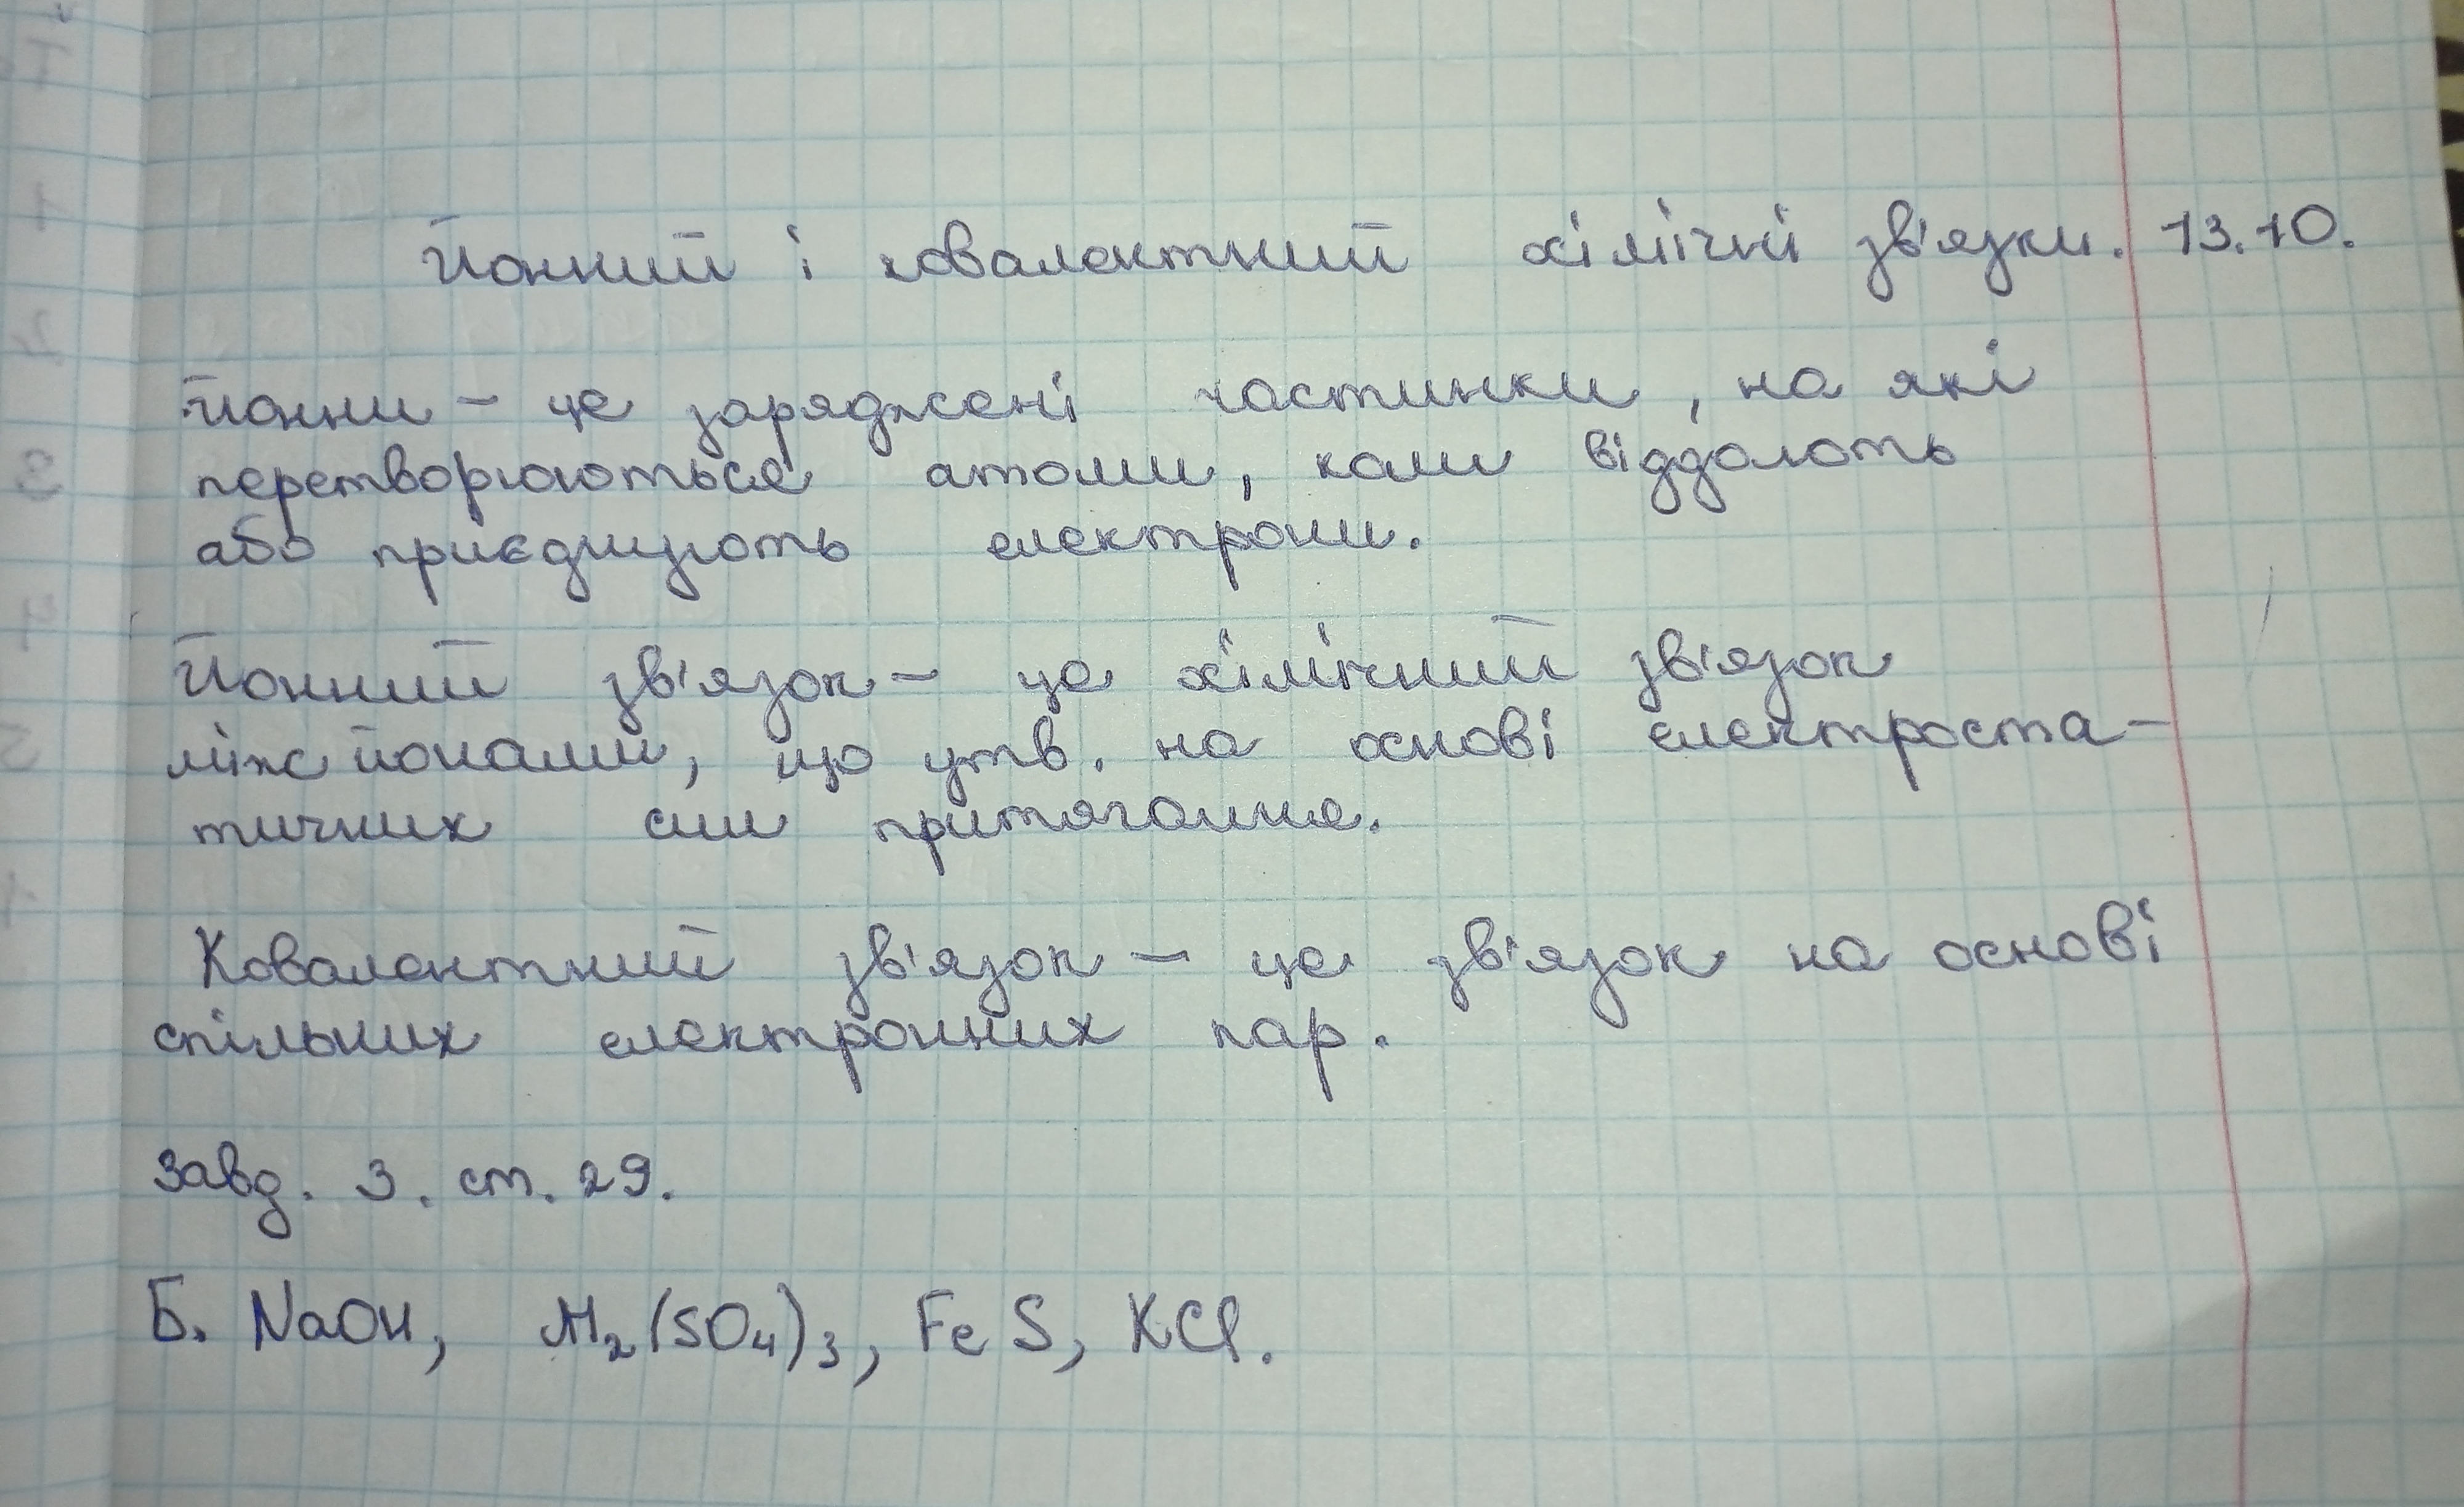 Йонний і ковалентний хімічні зв'язки. 13.10.
Йонни - це заряджені частинки, на які
перетворюються атоми, коли віддають
або приєднують електрони.
Йонний зв'язок - це хімічний зв'язок
між йонами, що утв. на основі електроста-
тичних сил притягання.
Ковалентний зв'язок - це зв'язок на основі
спільних електронних пар.
Завд. 3. ст. 29.
Б. NaOH, Al₂(SO₄)₃, FeS, KCl.